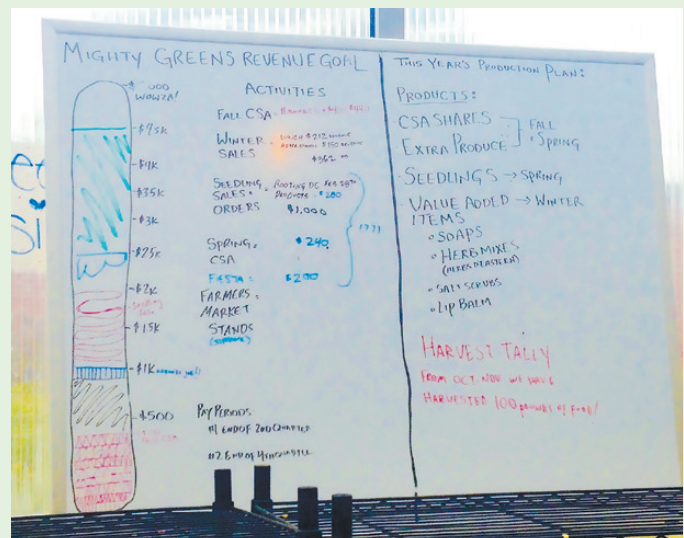 MIGHTY GREENS REVENUE GOAL
WOWZA!
$4K
$3K
$2K
$1K
$500
ACTIVITIES
FALL CSA
WINTER
SALES
$362
SEEDLING
SALES
ORDERS
ROOTING DC FEB
PRODUCTS $200
$1,000
SPRING
CSA
$240
FIESTA
$200
FARMERS
MARKET
STANDS
PAY PERIODS
#1 END OF 2ND QUARTER
#2 END OF 4TH QUARTER
THIS YEAR'S PRODUCTION PLAN:
PRODUCTS:
CSA SHARES
EXTRA PRODUCE
FALL
SPRING
SEEDLINGS → SPRING
VALUE ADDED → WINTER
ITEMS
SOAPS
HERB MIXES
SALT SCRUBS
LIP BALM
HARVEST TALLY
FROM OCT-NOV WE HAVE
HARVESTED 100 pounds of food!